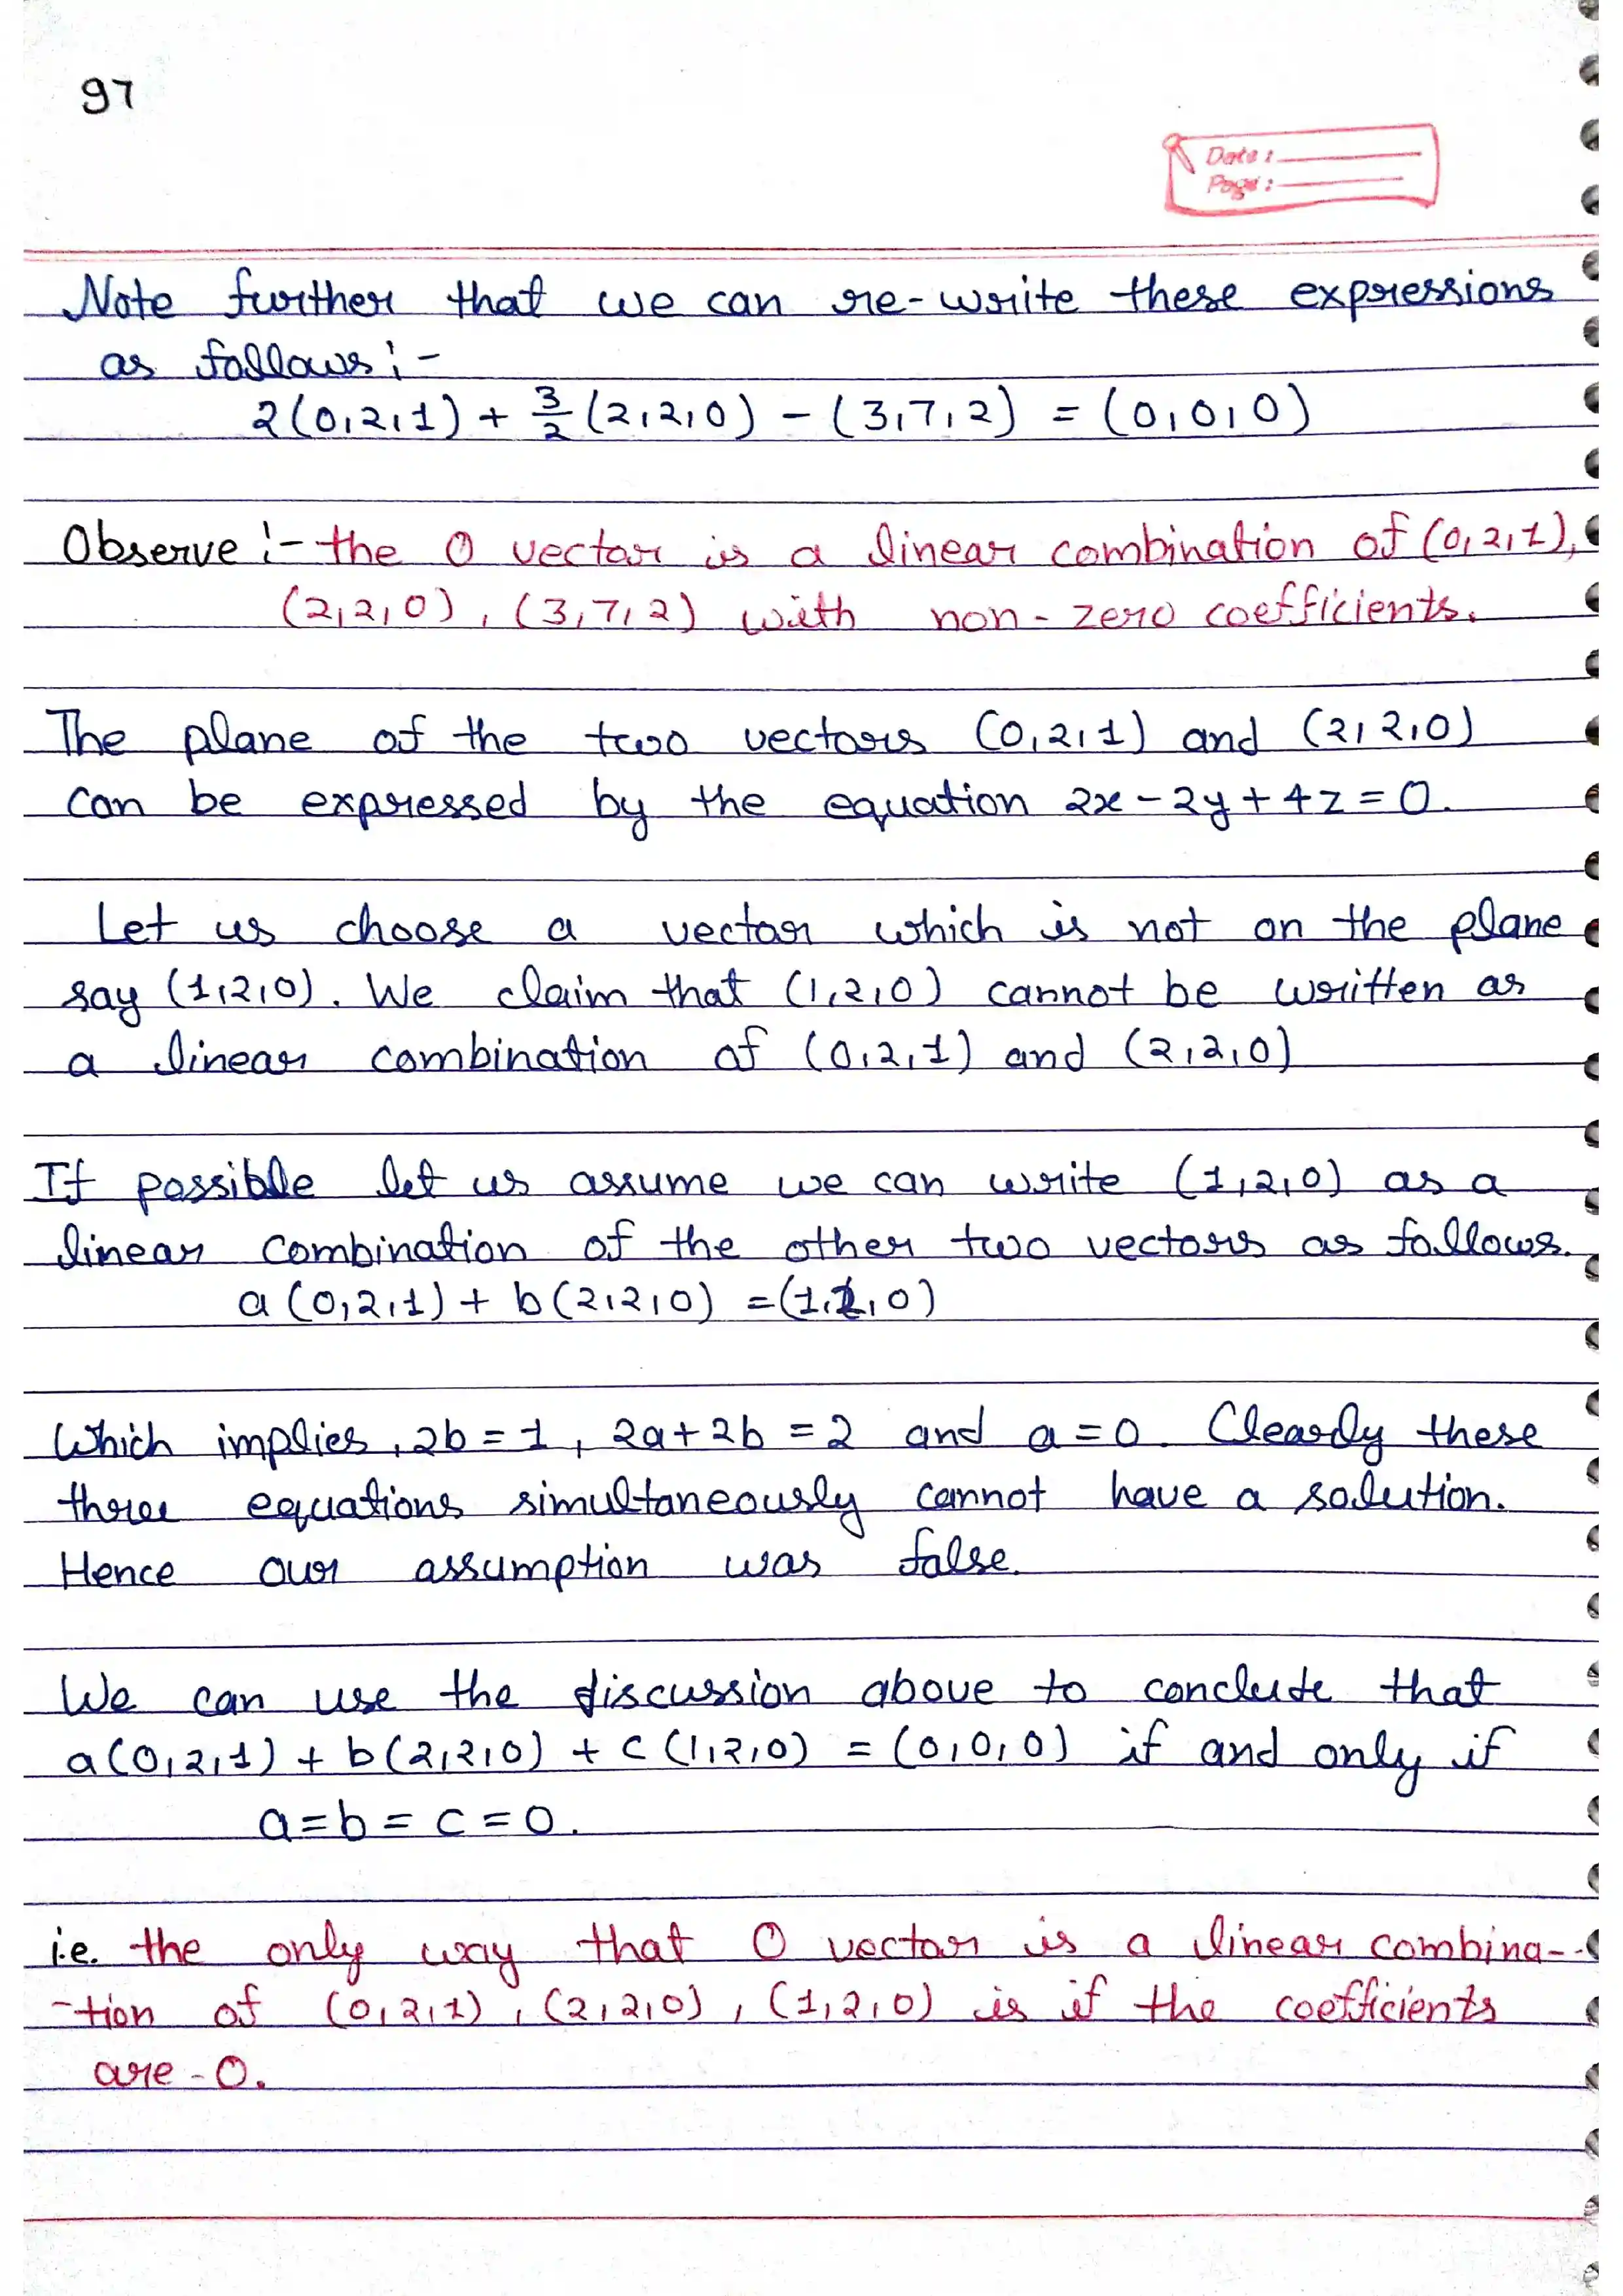 97
Date :
Page :
Note further that we can re-write these expressions
as follows :-
2(0,2,1) + 3/2 (2,2,0) - (3,7,2) = (0,0,0)
Observe :- the 0 vector is a linear combination of (0,2,1),
(2,2,0), (3,7,2) with non-zero coefficients.
The plane of the two vectors (0,2,1) and (2,2,0)
can be expressed by the equation 2x-2y+4z=0.
Let us choose a vector which is not on the plane
say (1,2,0). We claim that (1,2,0) cannot be written as
a linear combination of (0,2,1) and (2,2,0)
If possible let us assume we can write (1,2,0) as a
linear combination of the other two vectors as follows.
a(0,2,1) + b(2,2,0) = (1,2,0)
Which implies, 2b=1, 2a+2b=2 and a=0. Clearly these
three equations simultaneously cannot have a solution.
Hence our assumption was false.
We can use the discussion above to conclude that
a(0,2,1) + b(2,2,0) + c(1,2,0) = (0,0,0) if and only if
a=b=c=0.
i.e. the only way that 0 vector is a linear combina-
-tion of (0,2,1), (2,2,0), (1,2,0) is if the coefficients
are -0.